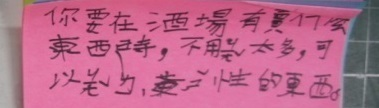 你要在酒場有買什麼
東西時，不用 太多，可
以 性的東西。